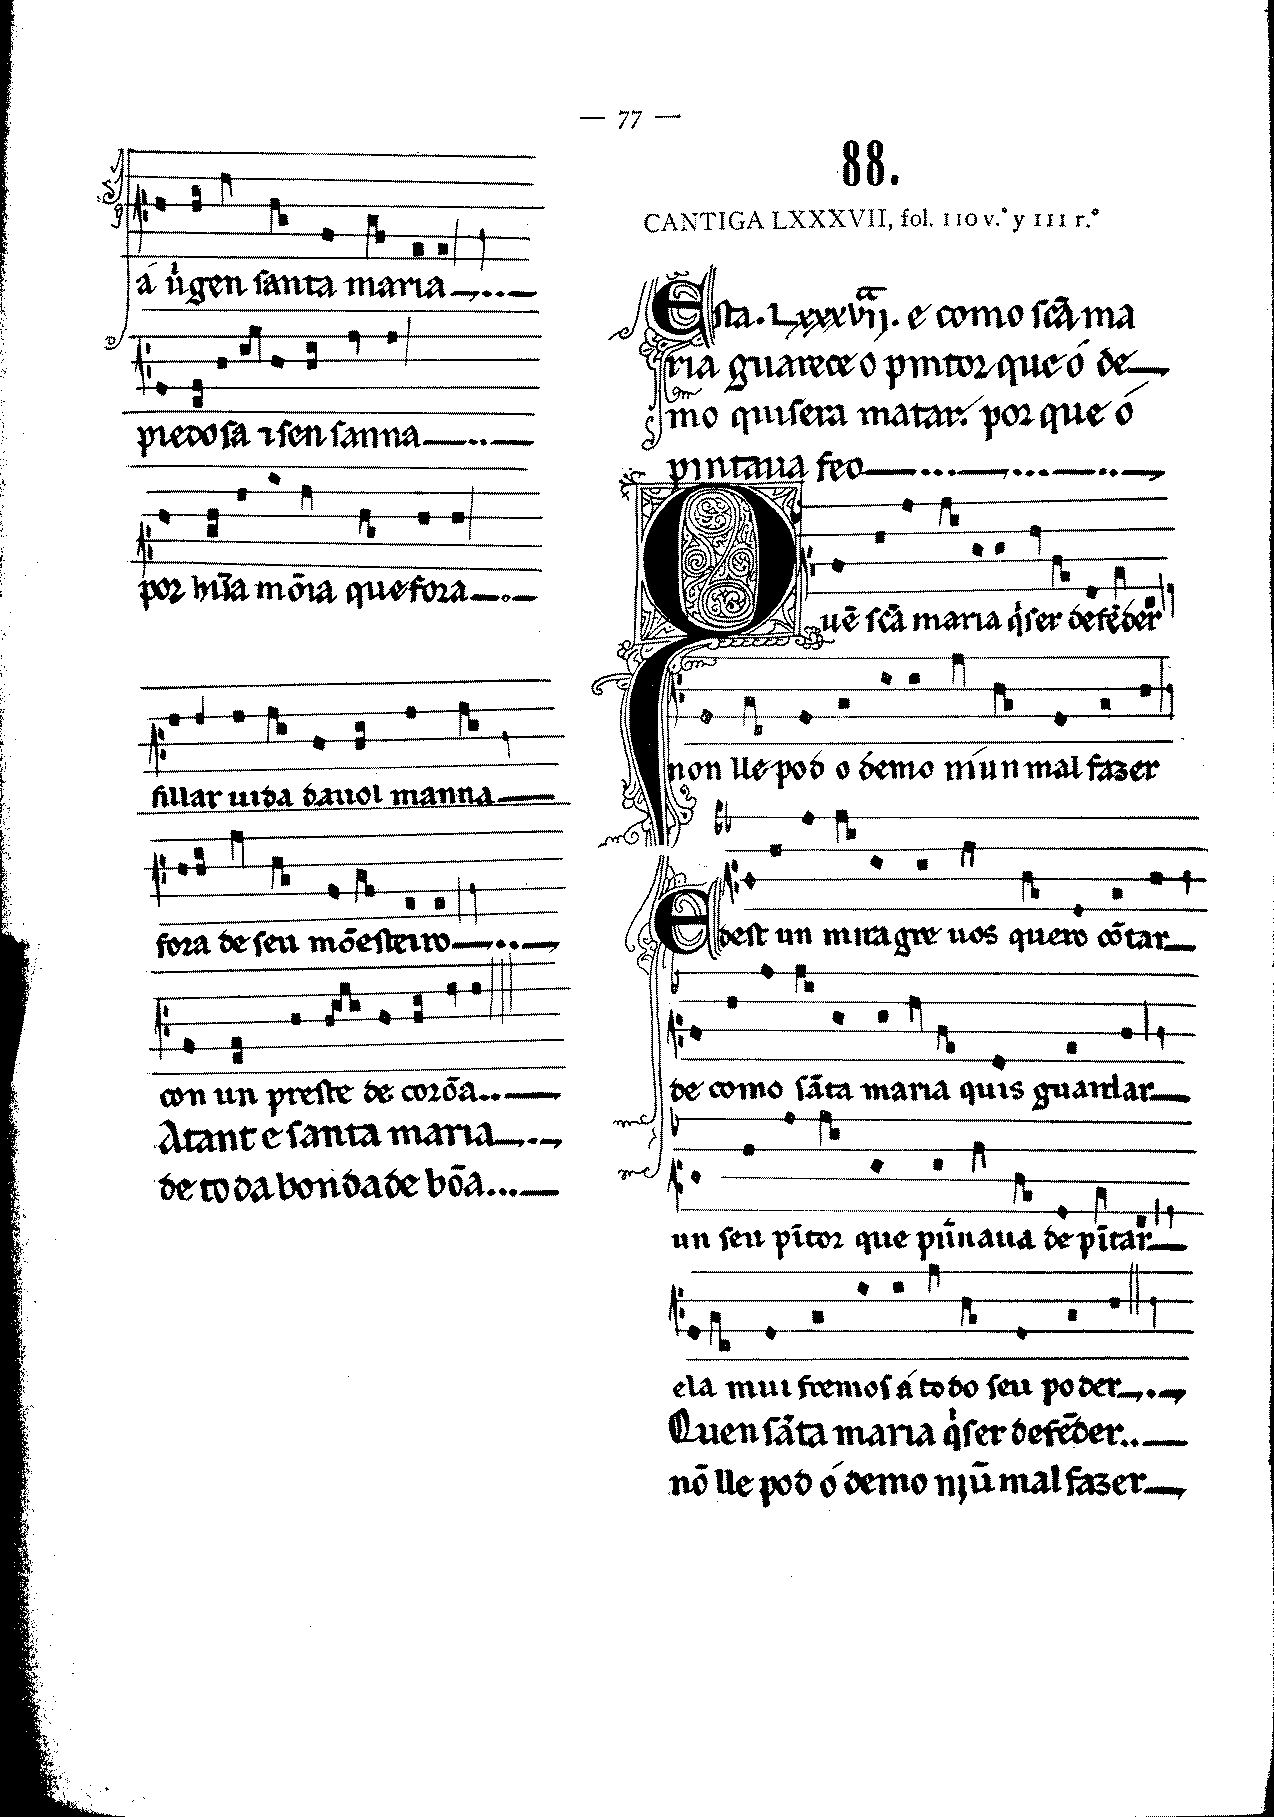 — 77 —
á uͥgen santa maria
piedosa ⁊ sen sanna
por hũa mõia que fora
fillar uida dauol manna
fora de seu mõesteiro
con un preste de corõa
Atant e santa maria
de toda bondade bõa
88.
CANTIGA LXXXVII, fol. 110 v.º y 111 r.º
Esta . Lxxxvijᵃ . e como sc̃a ma
ria guarece o pintor que ó de
mo quisera matar. por que ó
pintaua feo
Quẽ sc̃a maria qͥser defẽder
non lle pod o demo niun mal fazer
e dest un miragre uos quero cõtar
de como sãta maria quis guardar
un seu pĩtor que punnaua de pĩtar
ela mui fremos á todo seu poder
Quen sãta maria qͥser defẽder
nõ lle pod ó demo niũ mal fazer